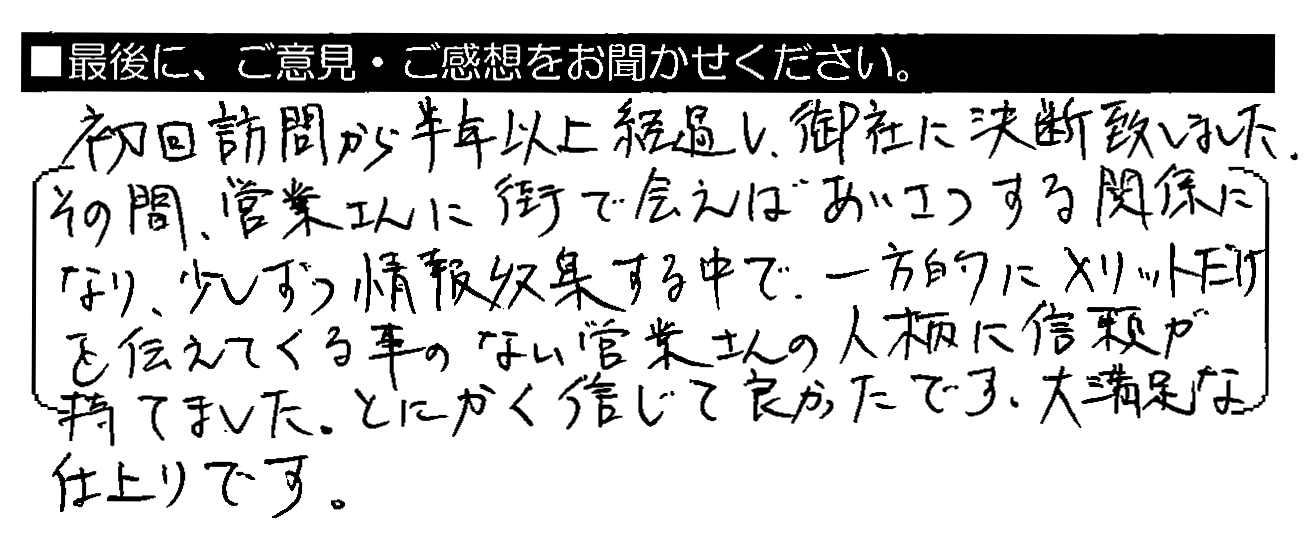 ■最後に、ご意見・ご感想をお聞かせください。
初回訪問から半年以上経過し、御社に決断致しました。
その間、営業さんに街で会えばあいさつする関係に
なり、少しずつ情報収集する中で、一方的にメリットだけ
を伝えてくる事のない営業さんの人柄に信頼が
持てました。とにかく信じて良かったです。大満足な
仕上りです。